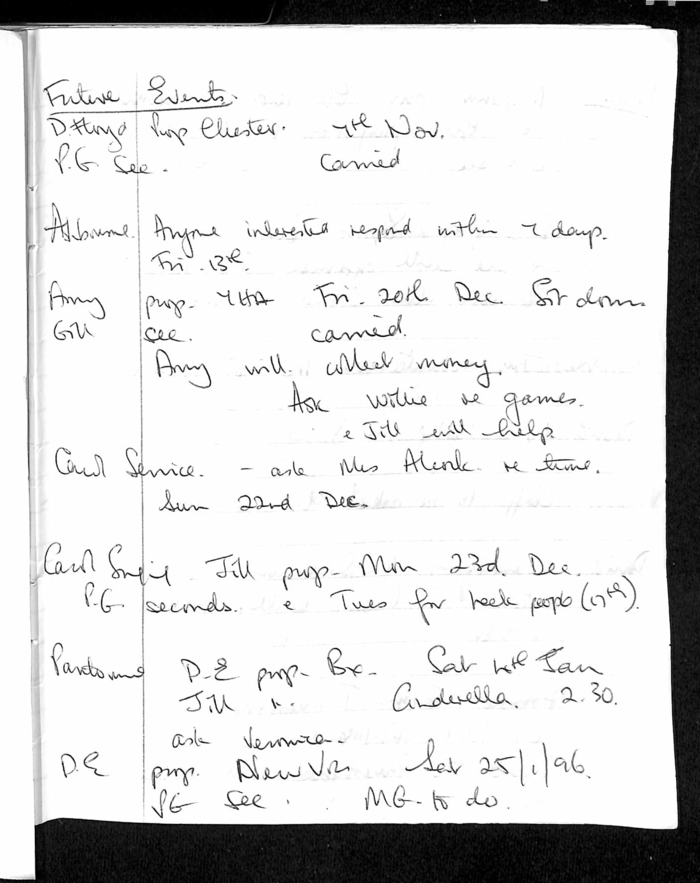 Future Events.
D. Lloyd Prop Chester. 7th Nov.
P.G Sec. Carried
Ashbourne. Anyone interested respond within 7 days.
Fri. 13th.
Amy prop. YHA Fri. 20th. Dec. Sit down
Gill sec. carried.
Amy will. collect money.
Ask Willie re games.
& Jill will help
Carol Service. - ask Mrs re time.
Sun 22nd Dec.
Carol Singing Jill prop- Mon 23rd. Dec.
P.G. seconds. & Tues for Leek people (17th).
Pantomime D.E prop- Bx- Sat Jan
Jill ". Cinderella. 2.30.
ask Veronica-
D.E prop. New Vic Sat 25/1/96.
PG Sec. MG- to do.